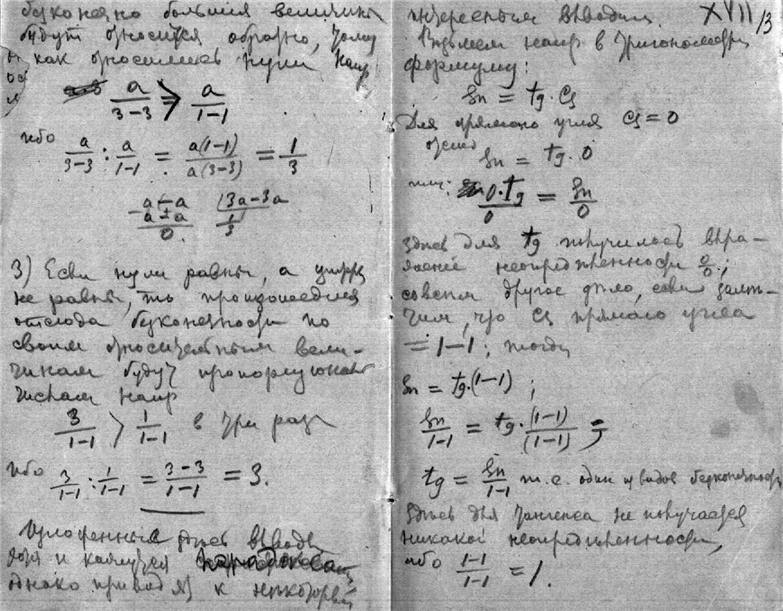 бесконечно большия величины
будут относится обратно, тому
как относились нули напр
a/3−3 > a/1−1
ибо a/3−3 : a/1−1 = a(1−1)/a(3−3) = 1/3
3) Если нули равны, а цифры
не равны, то произошедшия
отсюда бесконечности по
своим относительным вели-
чинам будут пропорциональны
числам напр
3/1−1 > 1/1−1 в три раза
ибо 3/1−1 : 1/1−1 = 3−3/1−1 = 3.
Изложенные здесь выводы
хотя и кажутся
однако приводят к некоторым
интересным выводам. XVII/3
Возьмем напр в тригонометрии
формулу:
Sn = tg · Cs
Для прямого угла Cs = 0
Sn = tg · 0
или: 0·tg/0 = Sn/0
здесь для tg получилось выра-
жение неопределенности 0/0;
совсем другое дело, если заме-
тим, что Cs прямого угла
= 1−1; тогда
Sn = tg·(1−1);
Sn/1−1 = tg·(1−1)/(1−1);
tg = Sn/1−1 т.е. один из видов бесконечности
Здесь для тангенса не получается
никакой неопределенности,
ибо 1−1/1−1 = 1.